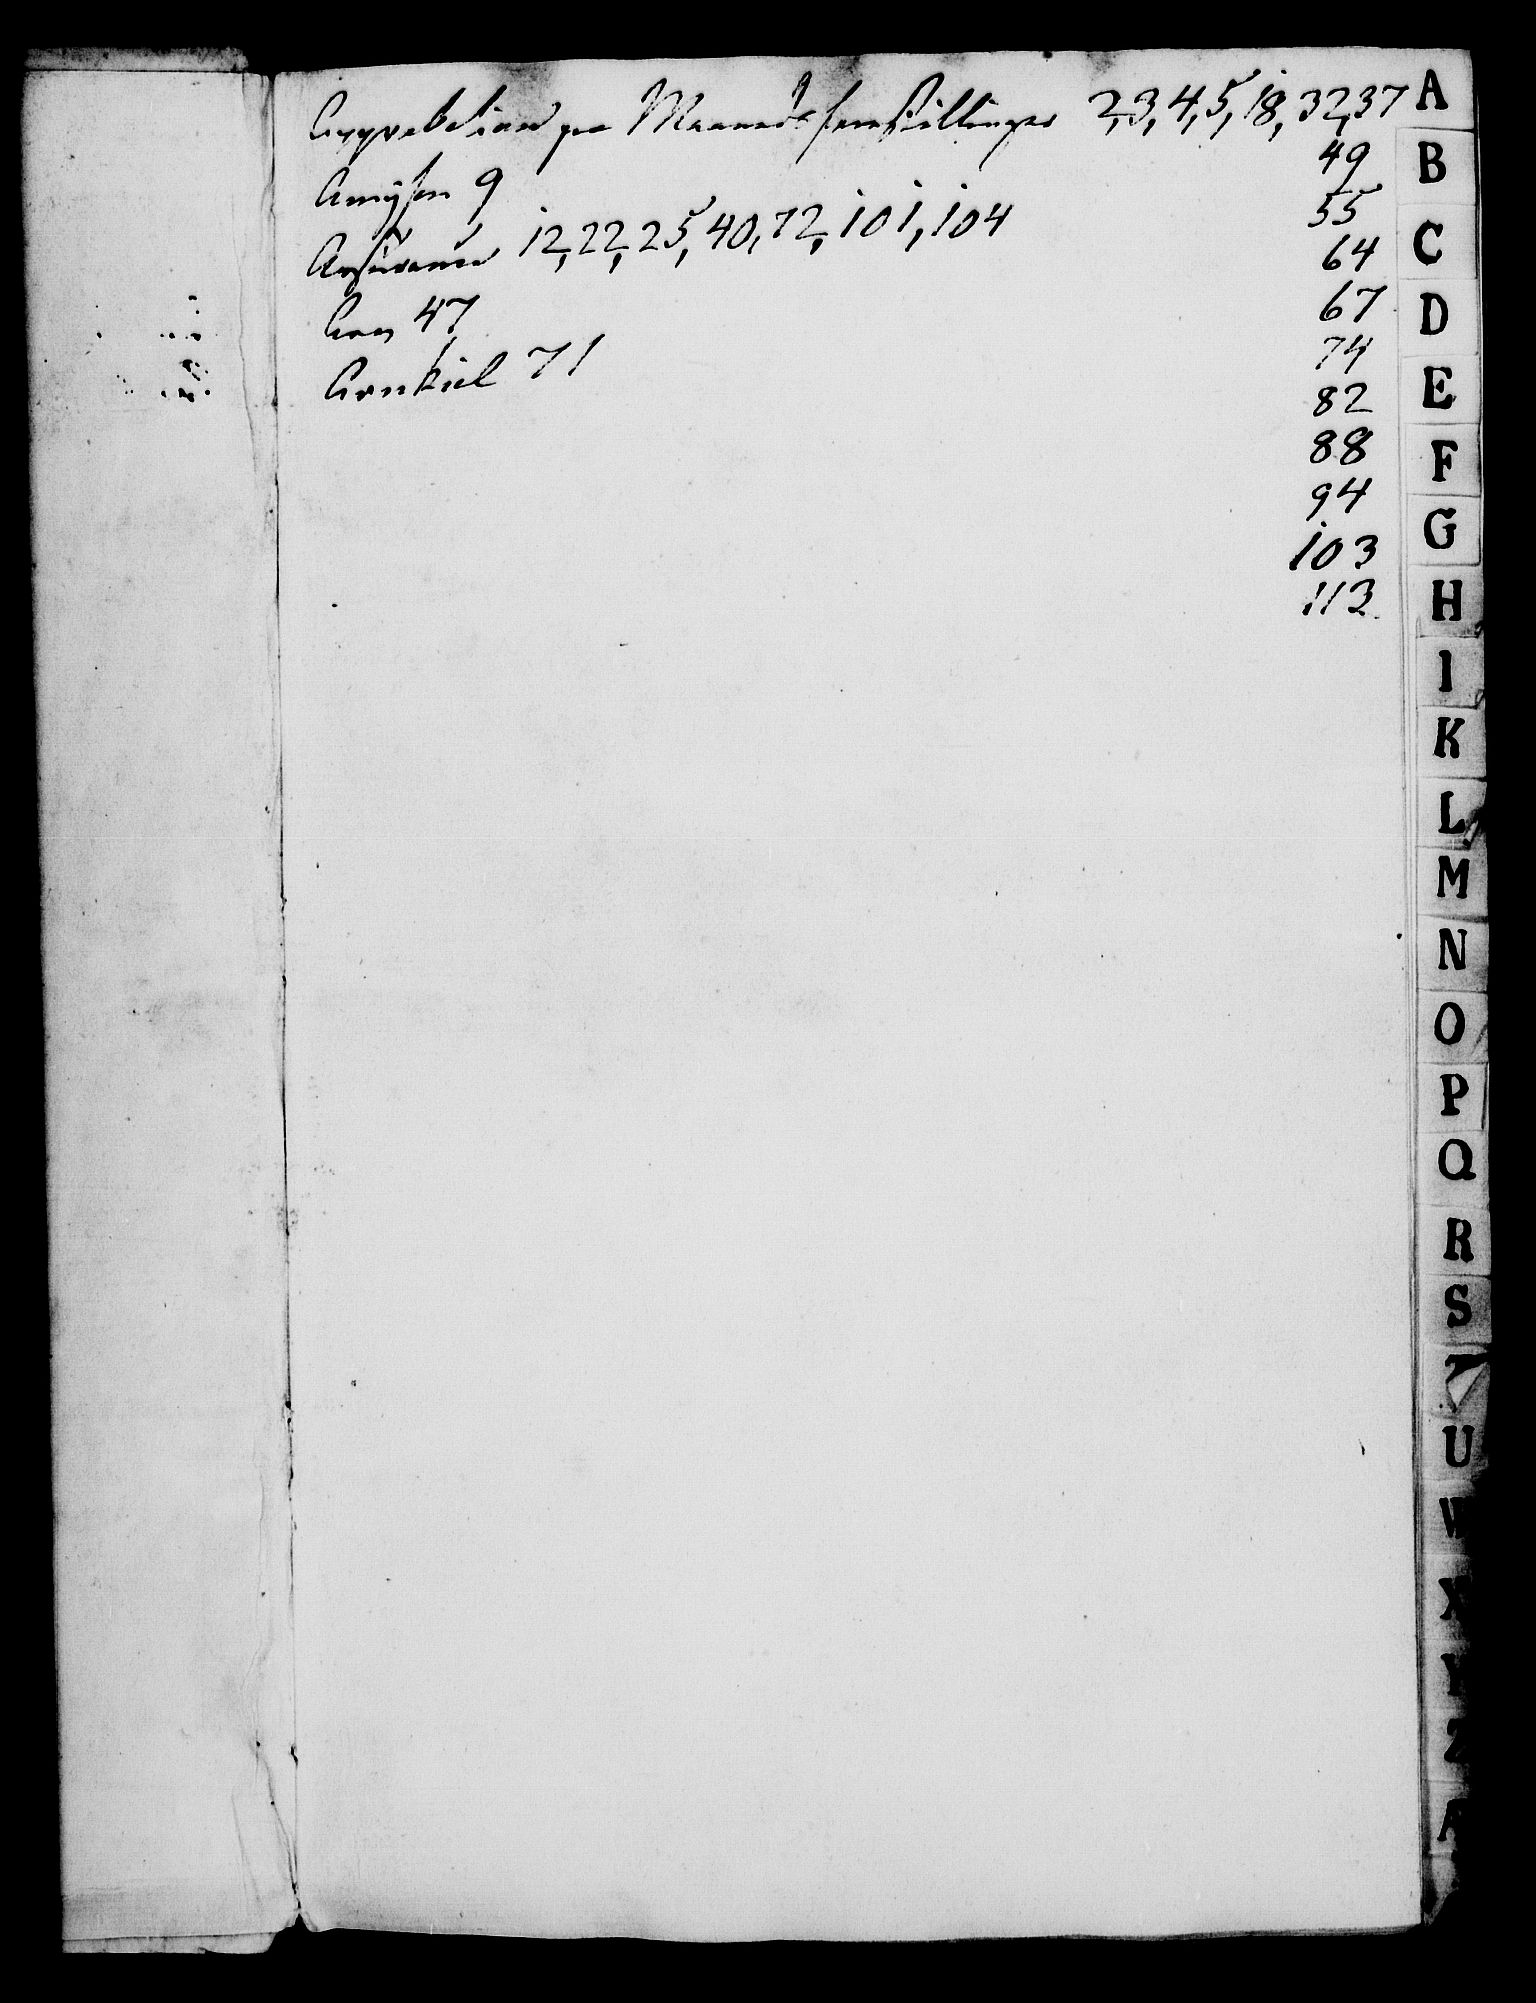 Approbation paa Maaneds forestillinger 2, 3, 4, 5, 18, 32, 37
49
55
64
67
74
82
88
94
103
113
9
Assurance 12, 22, 25, 40, 72, 101, 104
47
Arnkiel 71
A
B
C
D
E
F
G
H
I
K
L
M
N
O
P
Q
R
S
U